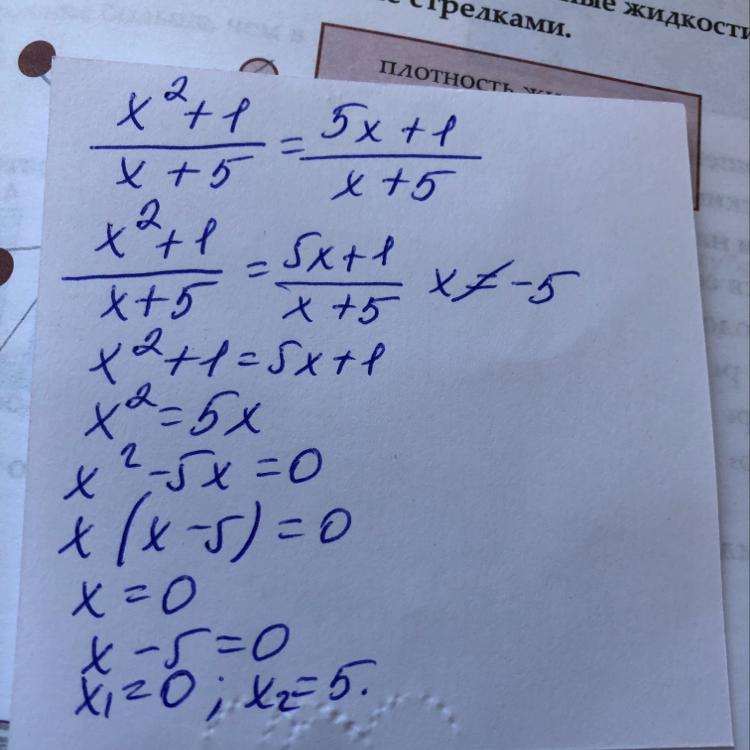 ные жидкости
е стрелками.
ПЛОТНОСТЬ
x²+1 / x+5 = 5x+1 / x+5
x²+1 / x+5 = 5x+1 / x+5 x≠-5
x²+1=5x+1
x²=5x
x²-5x=0
x(x-5)=0
x=0
x-5=0
x₁=0; x₂=5.